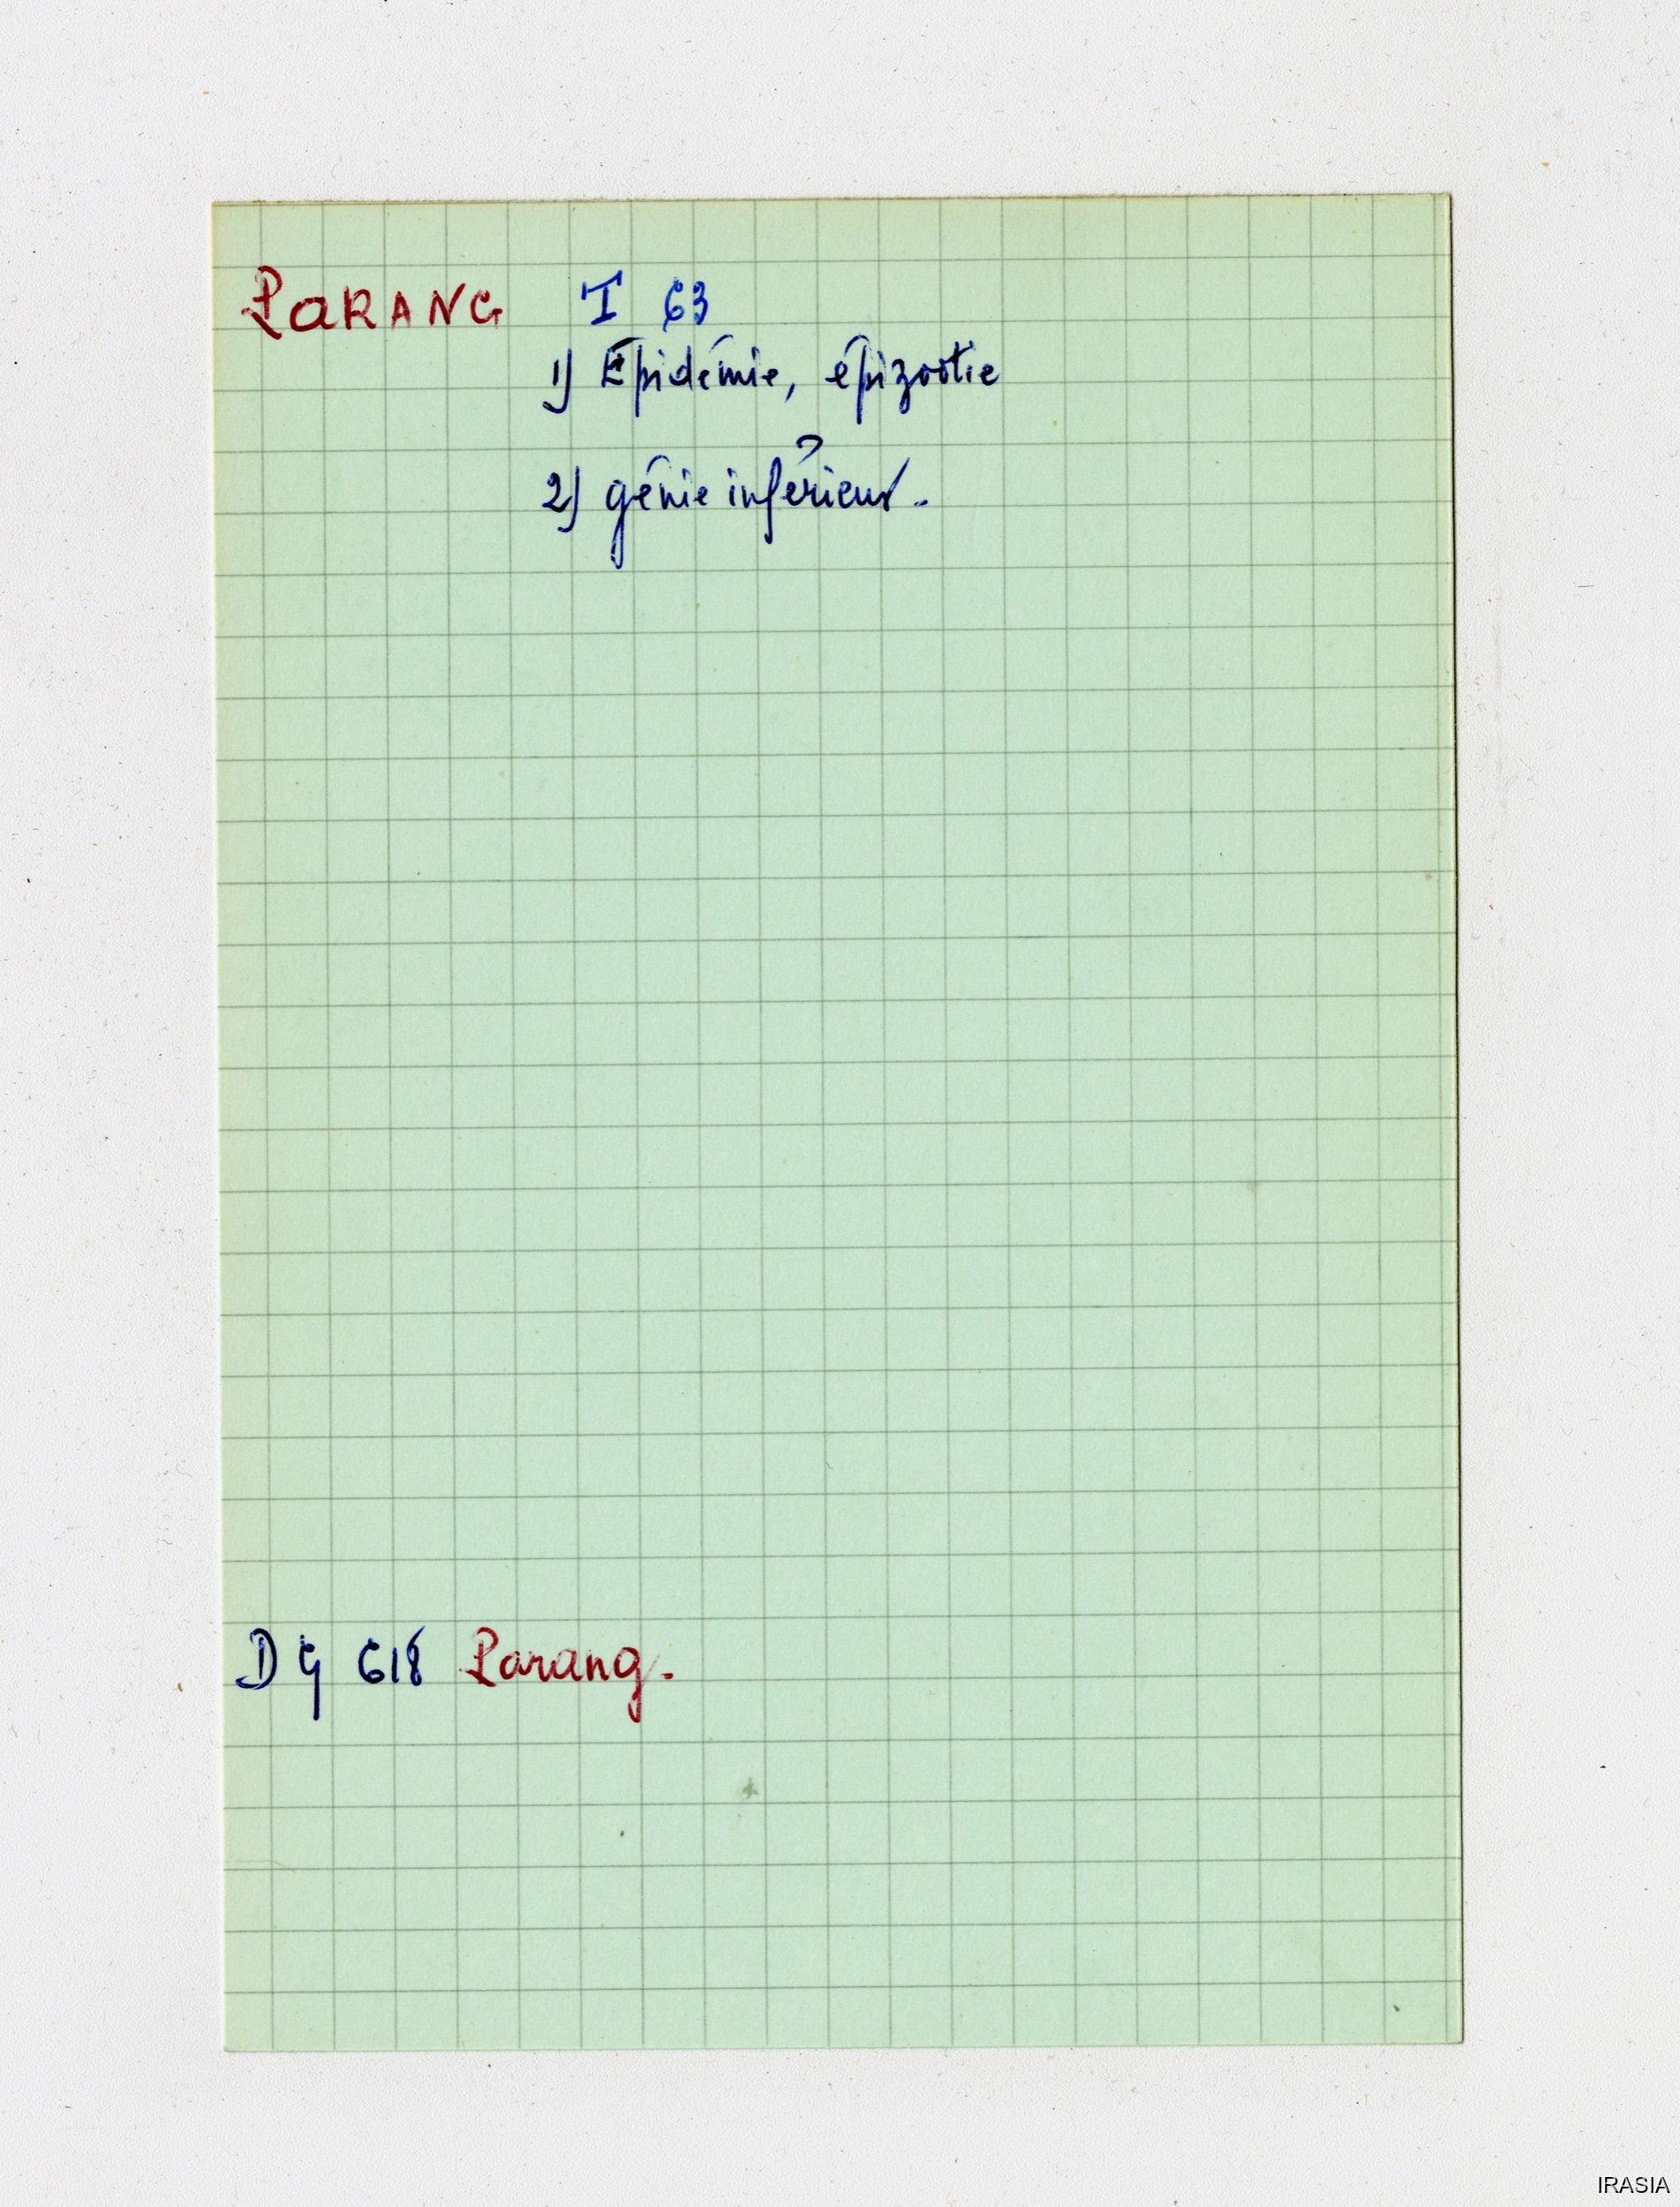 PaRANG I 63
1) Épidémie, épizootie
2) génie inférieur.
DG 618 Parang.
IRASIA